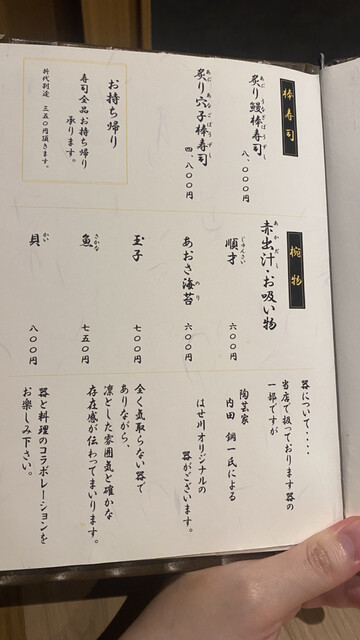 棒寿司
炙り鰻棒寿司
あぶ うなぎぼうずし
八、〇〇〇円
炙り穴子棒寿司
あぶ あなごぼうずし
四、八〇〇円
お持ち帰り
寿司全品お持ち帰り
承ります。
折代別途 三五〇円頂きます。
椀物
赤出汁・お吸い物
あかだし
順才
じゅんさい
六〇〇円
あおさ海苔
のり
六〇〇円
玉子
七〇〇円
魚
さかな
七五〇円
貝
かい
八〇〇円
器について・・・・
当店で扱っております器の
一部ですが
陶芸家
内田 鋼一氏による
はせ川オリジナルの
器がございます。
全く気取らない器で
ありながら、
凛とした雰囲気と確かな
存在感が伝わってまいります。
器と料理のコラボレーションを
お楽しみ下さい。